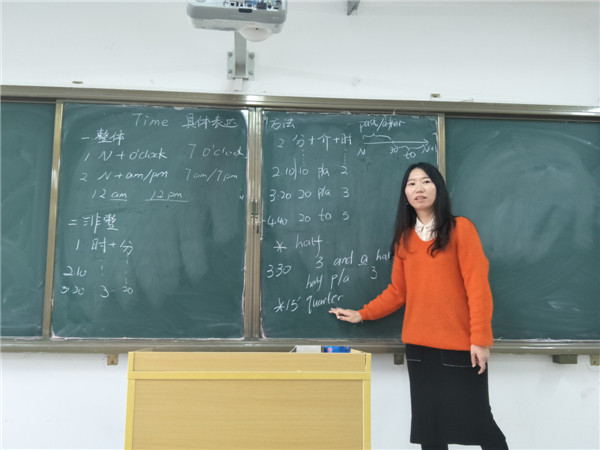 Time 具体表达方法
一 整体
1 N + o'clock 7 o'clock
2 N + am/pm 7am/7pm
12 am 12 pm
二 非整
1 时+分
2:10
3:20 3 20
2 分+介+时
past/after
N 30 N+1
to
2:10 10 p/a 2
3:20 20 p/a 3
4:40 20 to 5
* half
3:30 3 and a half
half p/a 3
*15' quarter